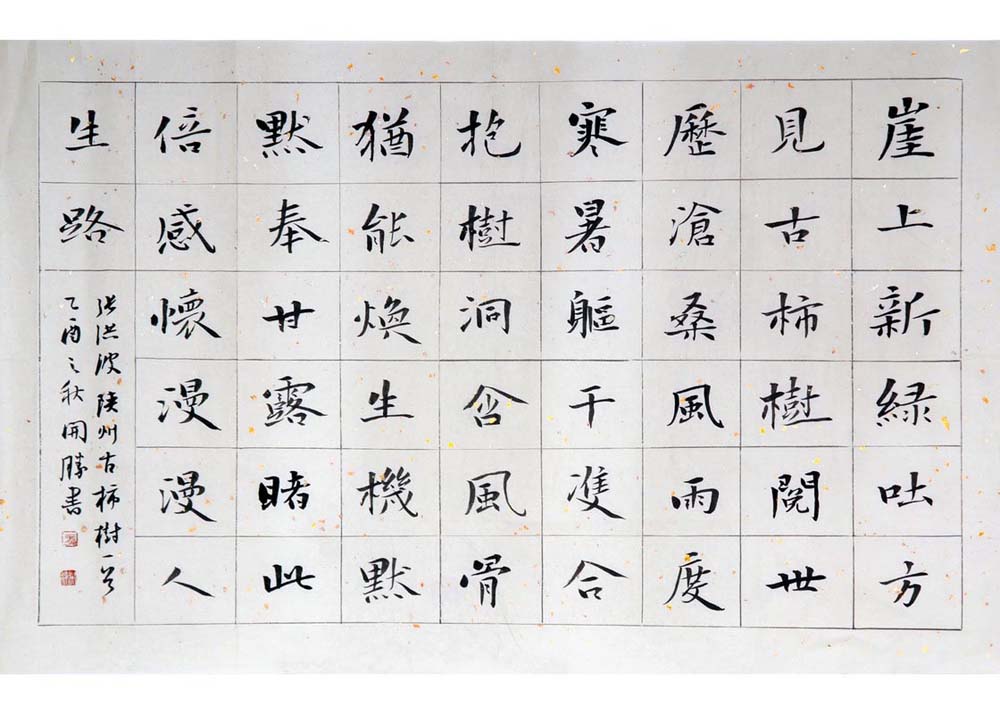 崖上新緑吐方
見古柿樹閱世
歷滄桑風雨度
寒暑軀干雙合
抱樹洞含風骨
猶能煥生機默
默奉甘露睹此
倍感懷漫漫人
生路
張洪波陝州古柿樹一首
乙酉之秋開勝書